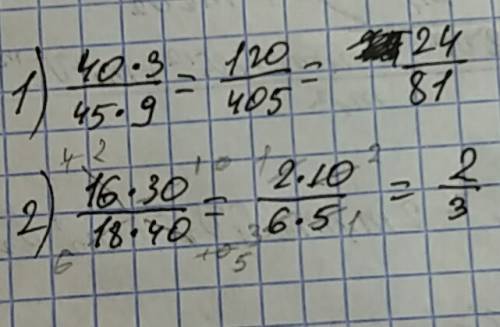 1) 40·3/45·9 = 120/405 = 24/81
4 2 10 1 2
2) 16·30/18·40 = 2·10/6·5 = 2/3
6 10 5 3 1